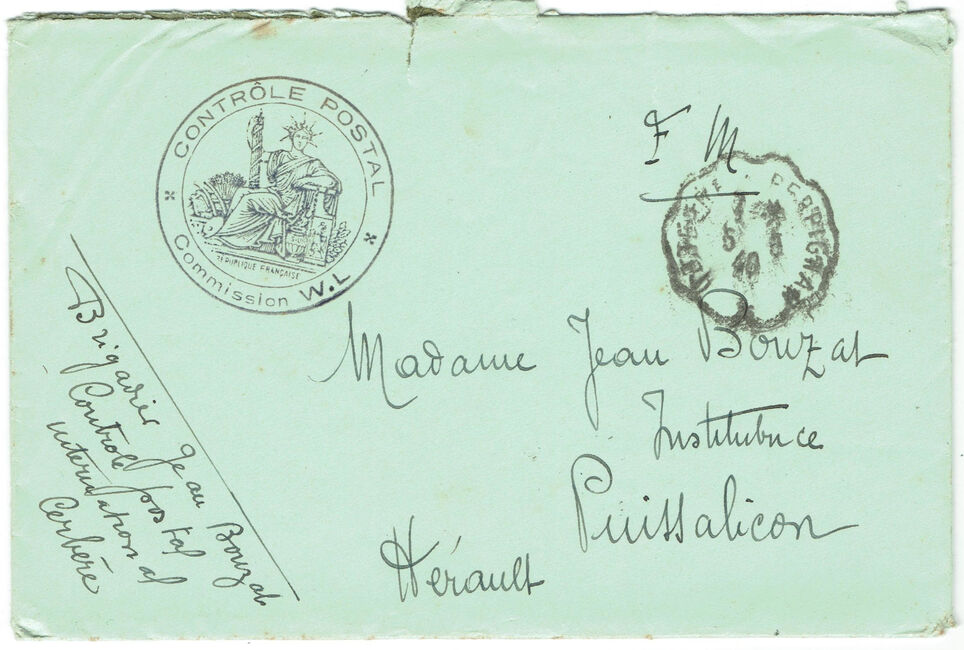 CONTRÔLE POSTAL
RÉPUBLIQUE FRANÇAISE
Commission W.L
F M
PERPIGNAN
5
40
Madame Jean Bouzat
Institutrice
Puissalicon
Hérault
Brigadier Jean Bouzat
Contrôle postal
international
Cerbère